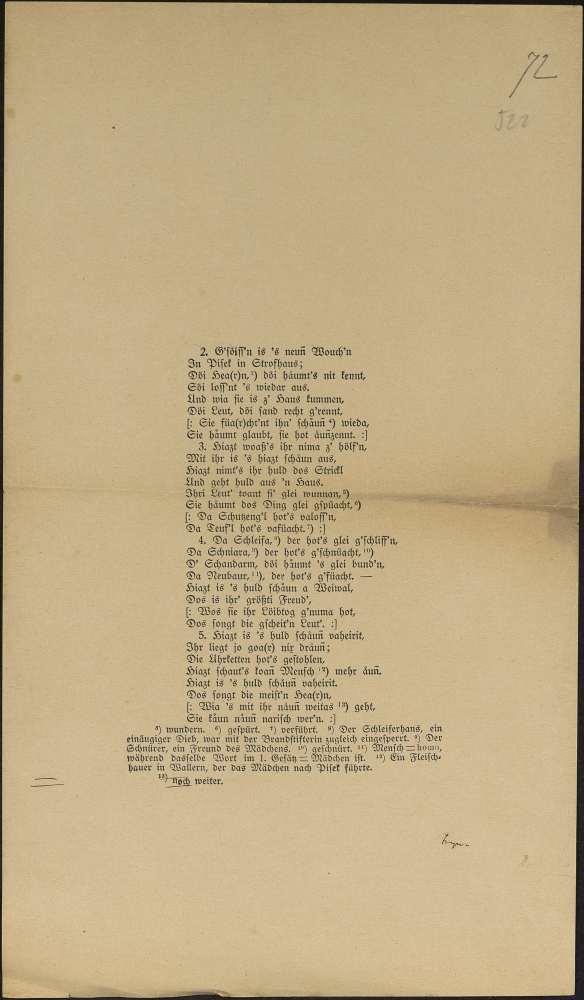 72
522
2. G'söiss'n is 's neun̄ Wouch'n
In Pisek in Strofhaus;
Döi Hea(r)n, ³) döi håumt's nit kennt,
Söi loss'nt 's wiedar aus.
Und wia sie is z' Haus kummen,
Döi Leut, döi sand recht g'rennt,
[: Sie füa(r)cht'nt ihn' schåun̄ ⁴) wieda,
Sie håumt glaubt, sie hot åun̄zennt. :]
3. Hiazt woaß's ihr nima z' hölf'n,
Mit ihr is 's hiazt schåun aus,
Hiazt nimt's ihr huld dos Strickl
Und geht huld aus 'n Haus.
Ihri Leut' toant si' glei wunnan, ⁵)
Sie håumt dos Ding glei gspüacht, ⁶)
[: Da Schutzeng'l hot's valoss'n,
Da Teuf'l hot's vafüacht. ⁷) :]
4. Da Schleifa, ⁸) der hot's glei g'schliff'n,
Da Schniara, ⁹) der hot's g'schnüacht, ¹⁰)
D' Schandarm, döi håumt 's glei bund'n,
Da Neubaur, ¹¹), der hot's g'füacht. —
Hiazt is 's huld schåun a Weiwal,
Dos is ihr' größti Freud',
[: Wos sie ihr Löibtog g'numa hot,
Dos songt die gscheit'n Leut'. :]
5. Hiazt is 's huld schåun̄ vaheirit,
Ihr liegt jo goa(r) nix dråun̄;
Die Uhrketten hot's gestohlen,
Hiazt schaut's koan̄ Mensch ¹²) mehr åun̄.
Hiazt is 's huld schåun̄ vaheirit.
Dos songt die meist'n Hea(r)n,
[: Wia 's mit ihr nåun̄ weitas ¹³) geht,
Sie kåun nåun̄ narisch wer'n. :]
⁵) wundern. ⁶) gespürt. ⁷) verführt. ⁸) Der Schleiferhans, ein
einäugiger Dieb, war mit der Brandstifterin zugleich eingesperrt. ⁹) Der
Schnürer, ein Freund des Mädchens. ¹⁰) geschnürt. ¹¹) Mensch = homo,
während dasselbe Wort im 1. Gesätz = Mädchen ist. ¹²) Ein Fleisch-
hauer in Wallern, der das Mädchen nach Pisek führte.
¹³) noch weiter.